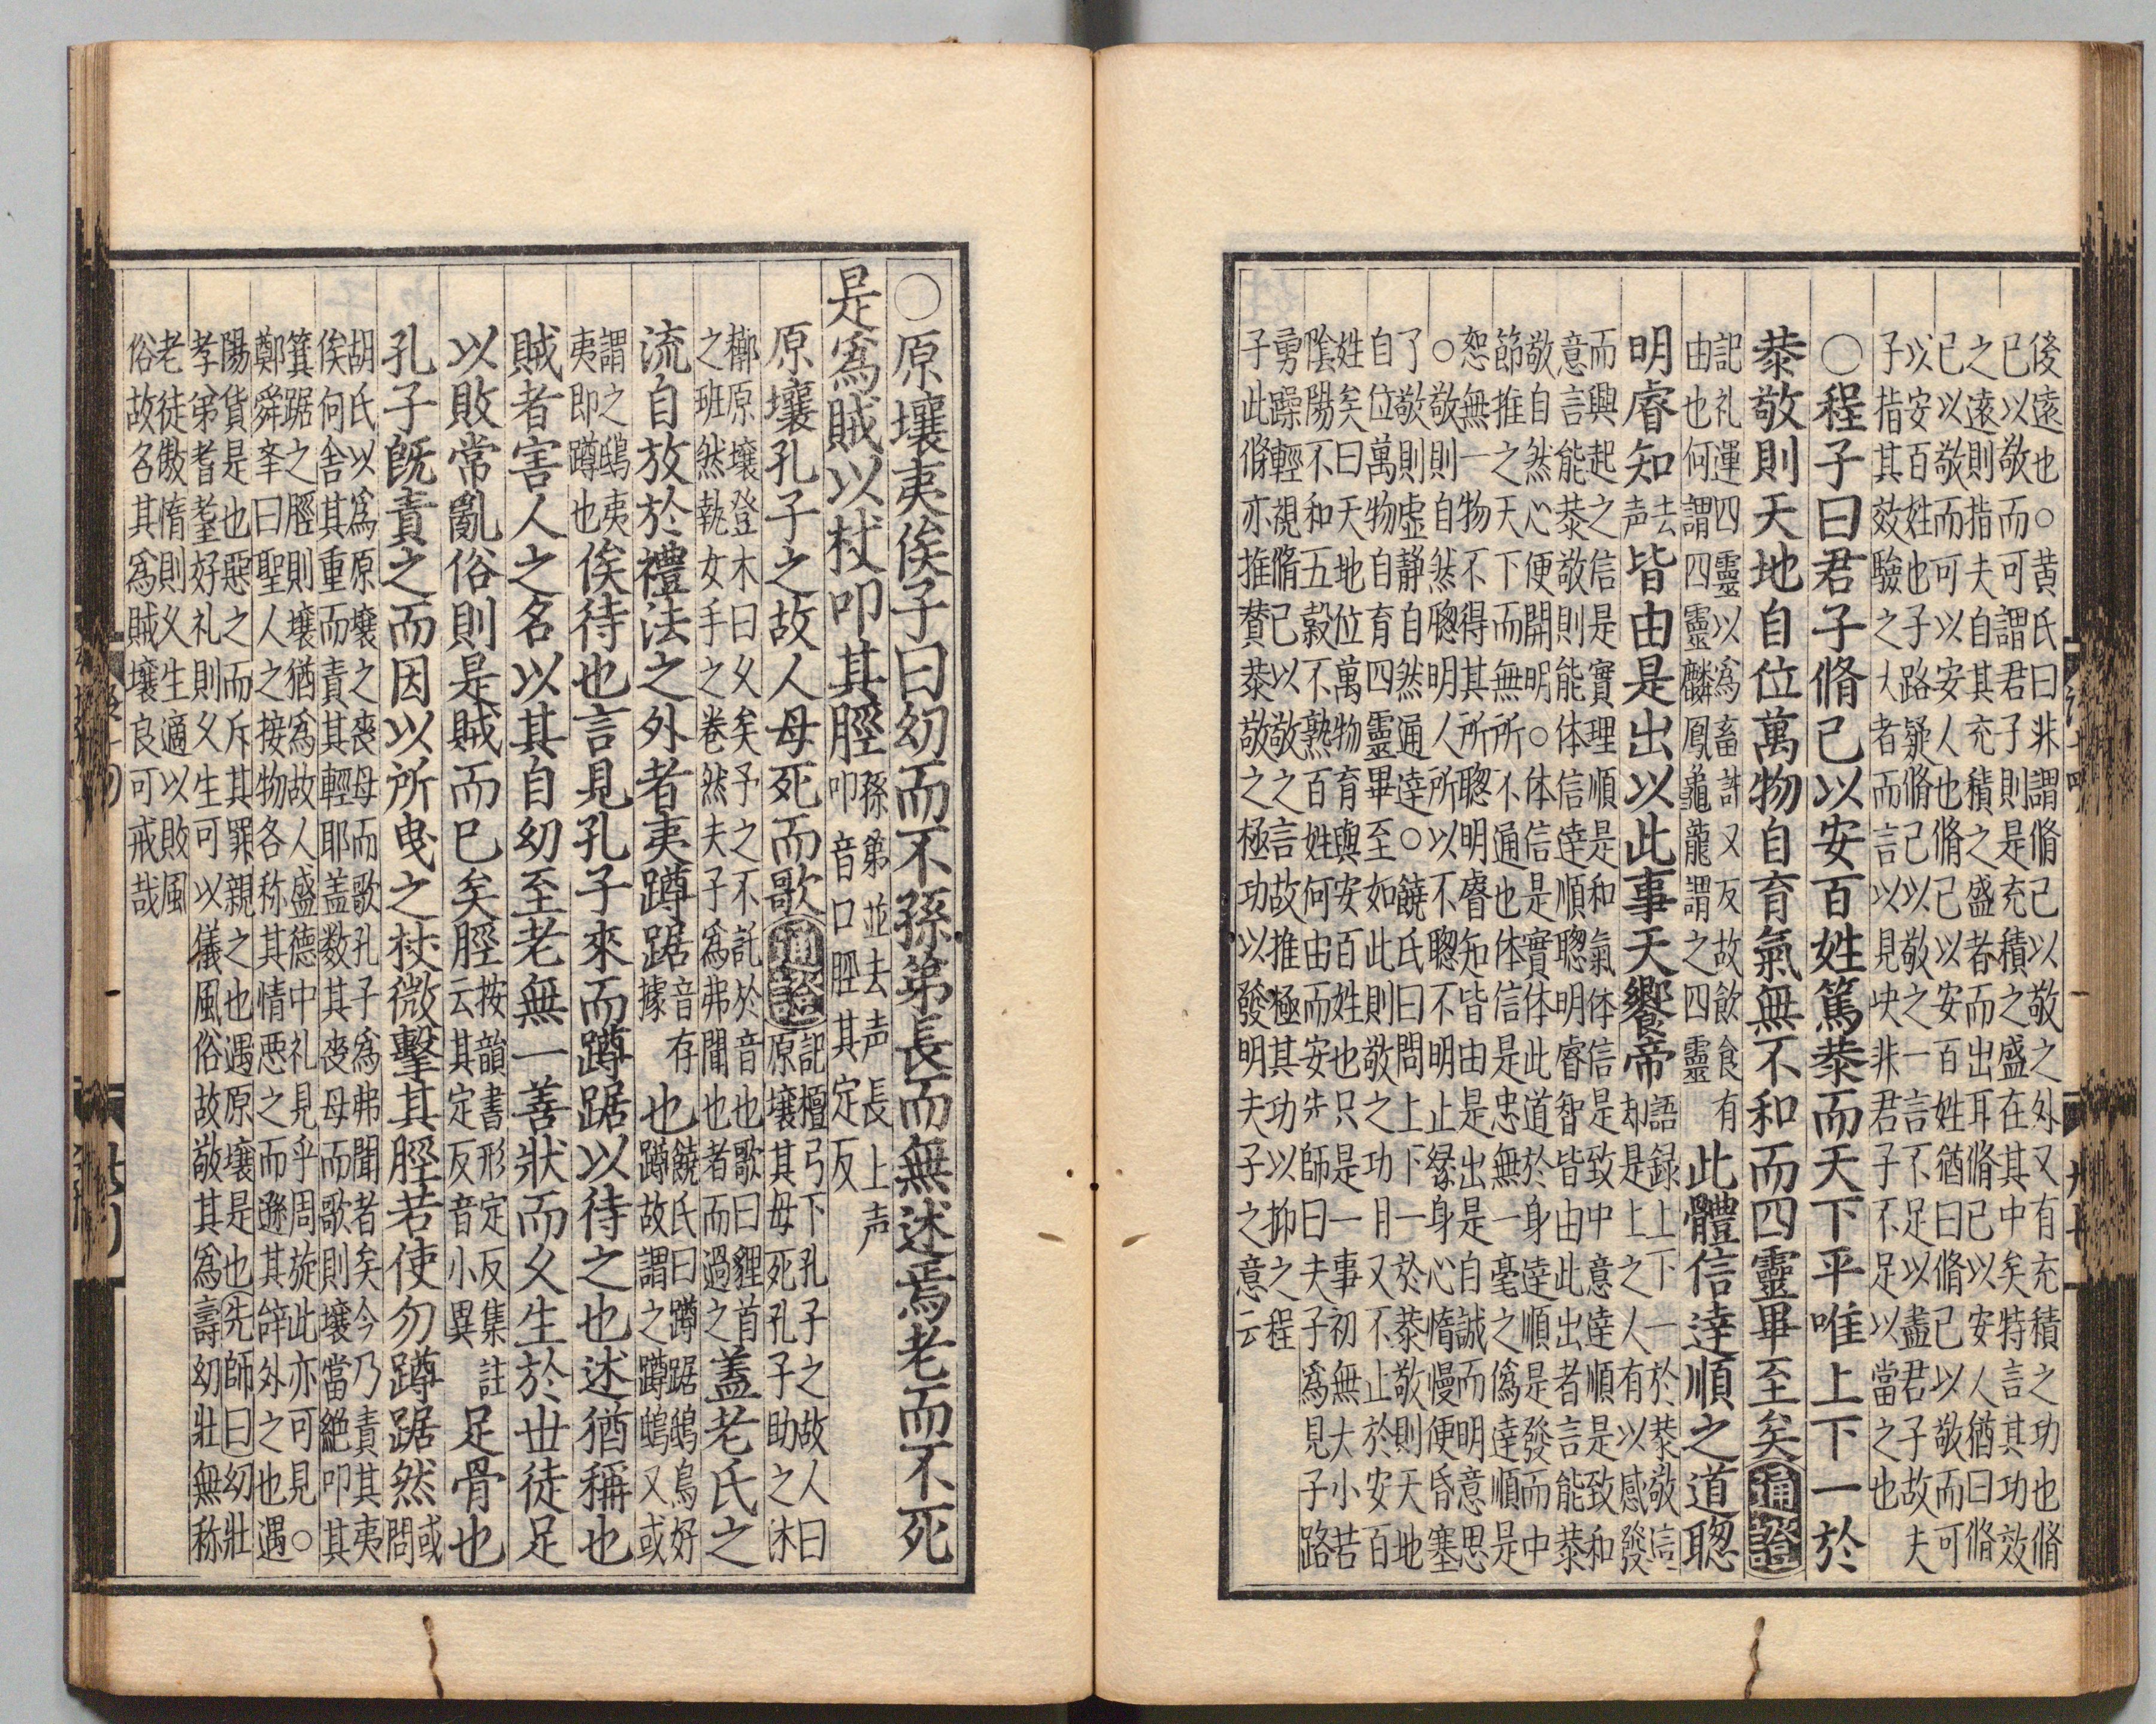 後遠也○黄氏曰非謂脩己以敬之外又有充積之功也脩
已以敬而可謂君子則是充積之盛在其中矣特言其功效
之遠則指夫自其充積之盛者而出耳脩已以安人猶曰脩
已以敬而可以安人也脩已以安百姓猶曰脩已以敬而可
以安百姓也子路疑脩己以敬之一言不足以盡君子故夫
子指其效驗之大者而言以見此非君子不足以當之也
○程子曰君子脩己以安百姓篤㳟而天下平唯上下一於
㳟敬則天地自位萬物自育氣無不和而四靈畢至矣通證
記礼運四靈以為畜許又反故飲食有
由也何謂四靈麟鳳龜龍謂之四靈
此體信逹順之道聦
明睿知去声皆由是出以此事天饗帝
語録上下一於㳟敬信
却是上之人有以感發
而興起之信是實理順是和氣体信是致中意逹順是致和
意言能㳟敬則能体信逹順聦明睿智皆由此出者言能㳟
敬自然心便開明○体信是實体此道於身逹順是發而中
節推之天下而無所不通也体信是忠無一毫之偽逹順是
恕無一物不得其所聦明睿知皆由是出是自誠而明意思
○敬則自然聦明人所以不聦不明止縁身心惰慢便昏塞
了敬則虚静自然通逹○饒氏曰問上下一於㳟敬則天地
自位萬物自育四靈畢至如此則敬之功用又不止於安百
姓矣曰天地位萬物育與安百姓也只是一事初無大小苦
陰陽不和五穀不熟百姓何由而安先師曰夫子為見子路
勇躁輕視脩己以敬之言故推極其功以抑之程
子此脩亦推賛㳟敬之極功以發明夫子之意云
○原壤夷俟子曰幼而不孫第長而無述焉老而不死
是為賊以杖叩其脛
孫第並去声長上声
叩音口脛其定反
原壤孔子之故人母死而歌通證
記檀弓下孔子之故人曰
原壤其母死孔子助之沐
槨原壤登木曰久矣予之不託於音也歌曰貍首
之班然執女手之卷然夫子為弗聞也者而過之
盖老氏之
流自放於禮法之外者夷蹲踞
音存
據
也
饒氏曰蹲踞鴟鳥好
蹲故謂之蹲鴟又或
謂之鴟夷
夷即蹲也
俟待也言見孔子來而蹲踞以待之也述猶稱也
賊者害人之名以其自幼至老無一善狀而久生於世徒足
以敗常亂俗則是賊而已矣脛
按韻書形定反集註
云其定反音小異
足骨也
孔子旣責之而因以所曳之杖微擊其脛若使勿蹲踞然
或
問
胡氏以為原壤之喪母而歌孔子為弗聞者矣今乃責其夷
俟何舎其重而責其輕耶盖数其喪母而歌則壤當絶叩其
箕踞之脛則壤猶為故人盛德中礼見乎周旋此亦可見○
鄭舜舉曰聖人之接物各称其情悪之而遜其辞外之也遇
陽貨是也惡之而斥其罪親之也遇原壤是也先師曰幼壯
孝弟耆耋好礼則久生可以儀風俗故敬其為壽幼壯無称
老徒傲惰則久生適以敗風
俗故名其為賊壤良可戒哉